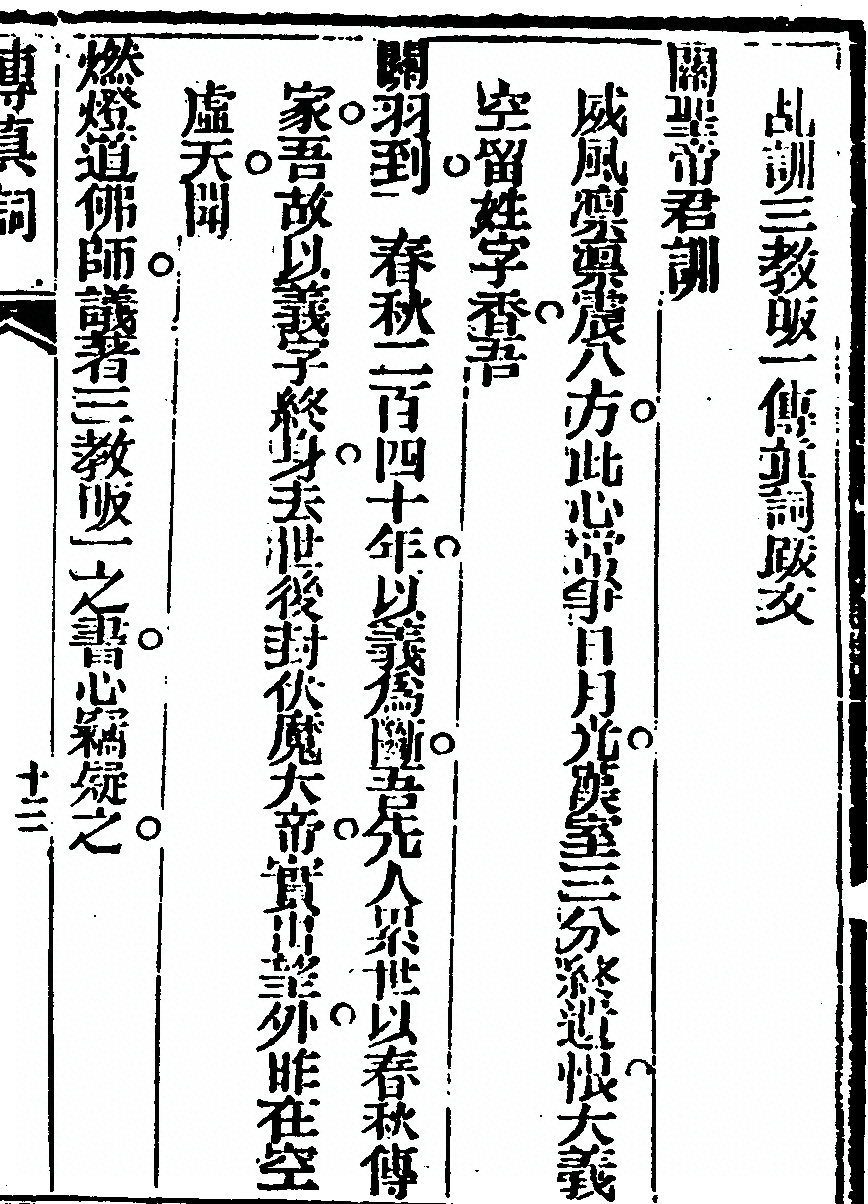 乩訓三教皈一傳真詞跋文
關聖帝君訓
威風凛凛震八方此心常爭日月光漢室三分終遺恨大義
空留姓字香吾
關羽到 春秋二百四十年以義為斷吾先人累世以春秋傳
家吾故以義字終身去世後封伏魔大帝實出望外昨在空
虛天聞
燃燈道佛師議著三教皈一之書心竊疑之
傳真詞
十二